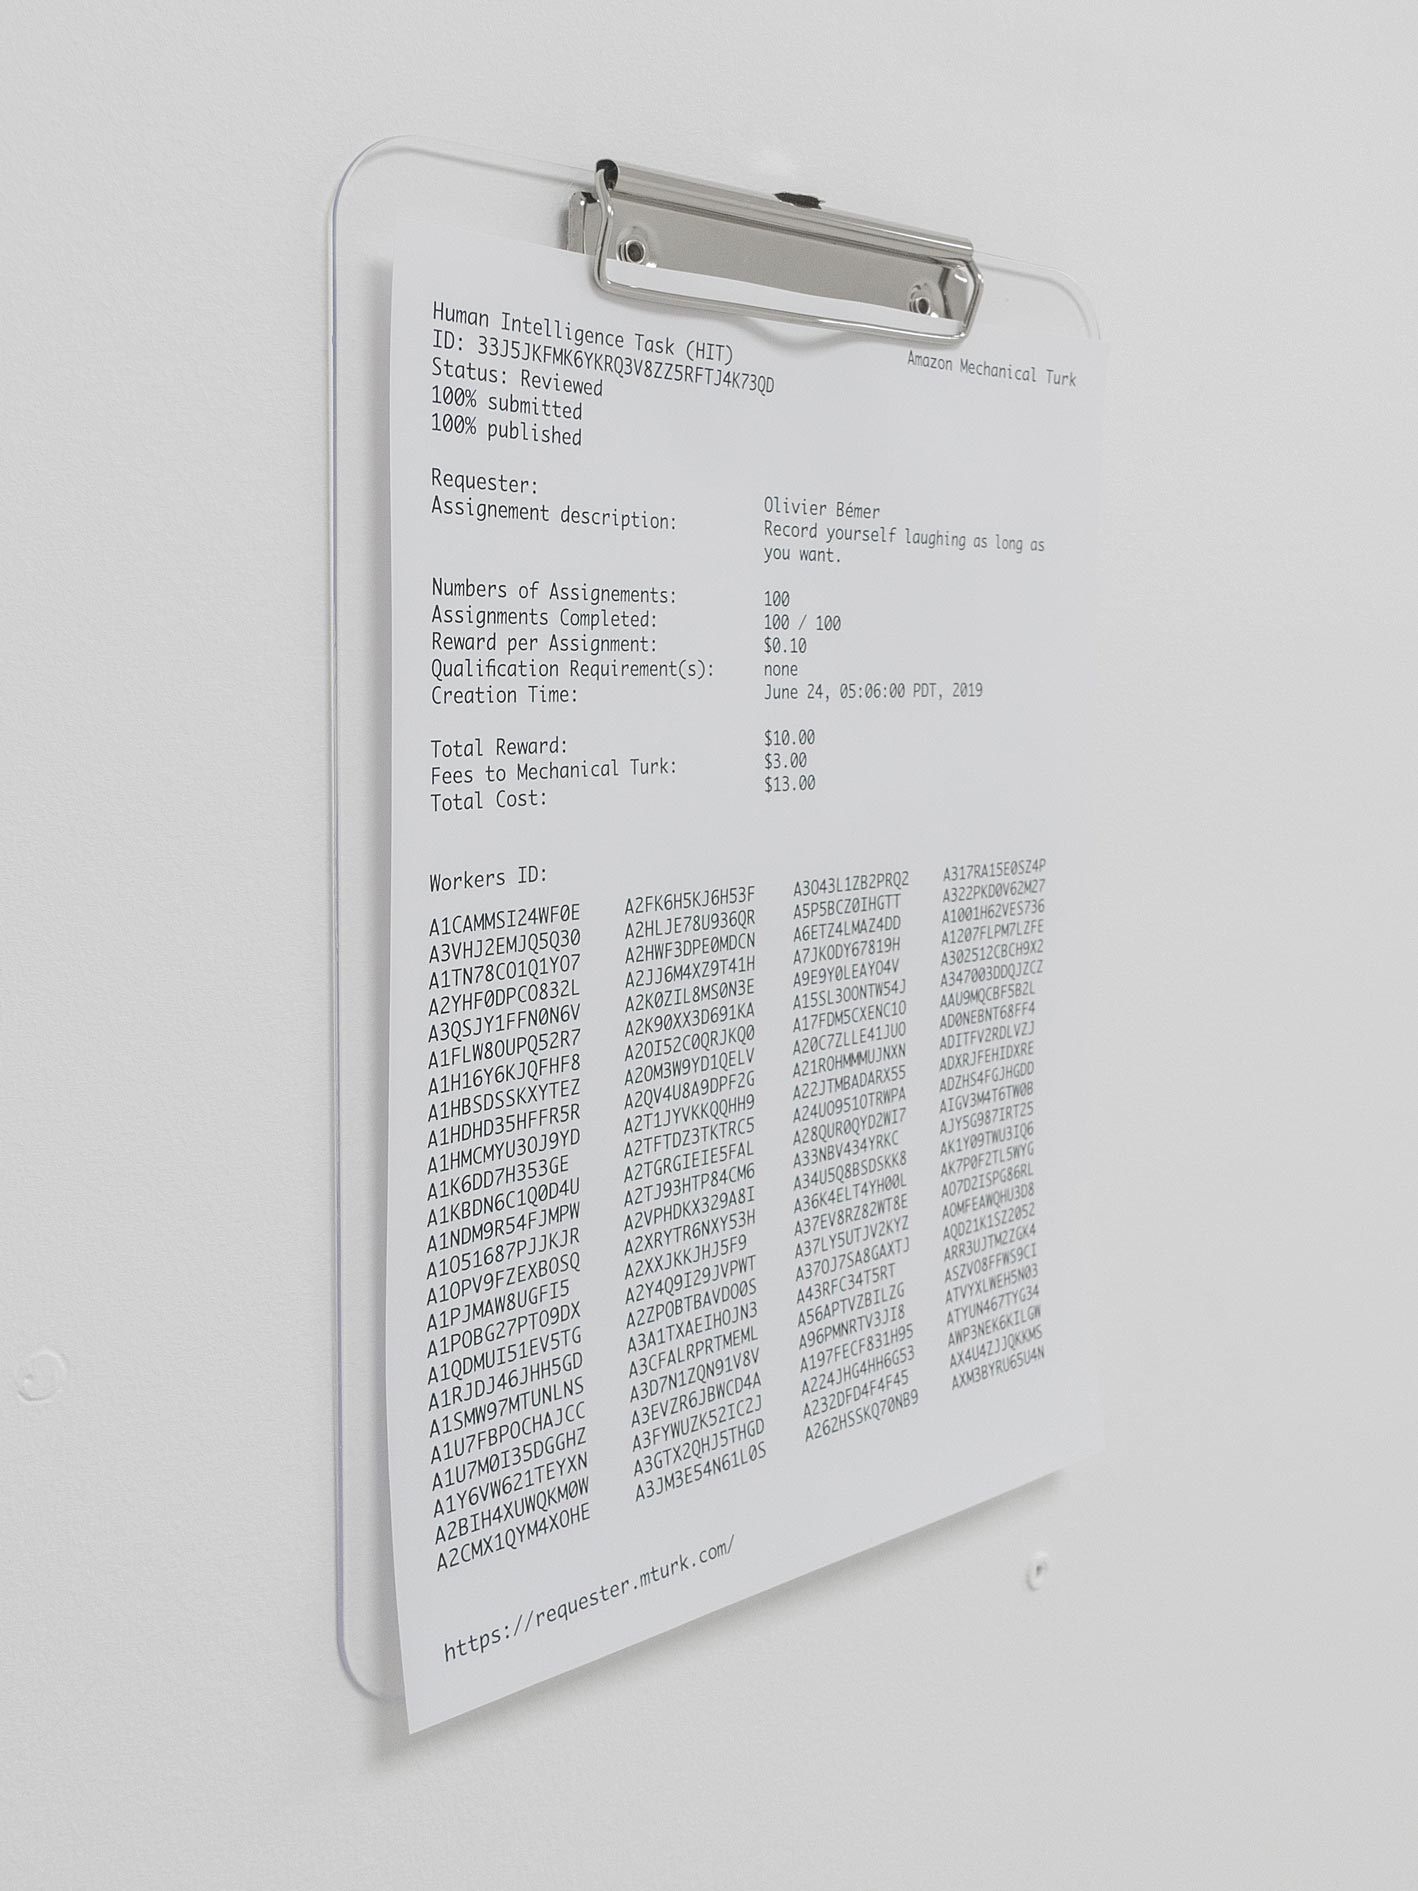 Human Intelligence Task (HIT)
ID: 33J5JKFMK6YKRQ3V8ZZ5RFTJ4K73QD
Status: Reviewed
100% submitted
100% published
Amazon Mechanical Turk
Requester: Olivier Bémer
Assignement description: Record yourself laughing as long as
you want.
Numbers of Assignements: 100
Assignments Completed: 100 / 100
Reward per Assignment: $0.10
Qualification Requirement(s): none
Creation Time: June 24, 05:06:00 PDT, 2019
Total Reward: $10.00
Fees to Mechanical Turk: $3.00
Total Cost: $13.00
Workers ID:
A1CAMMSI24WF0E
A3VHJ2EMJQ5Q30
A1TN78CO1Q1YO7
A2YHF0DPCO832L
A3QSJY1FFN0N6V
A1FLW8OUPQ52R7
A1H16Y6KJQFHF8
A1HBSDSSKXYTEZ
A1HDHD35HFFR5R
A1HMCMYU3OJ9YD
A1K6DD7H353GE
A1KBDN6C1Q0D4U
A1NDM9R54FJMPW
A1O51687PJJKJR
A1OPV9FZEXBOSQ
A1PJMAW8UGFI5
A1POBG27PTO9DX
A1QDMUI51EV5TG
A1RJDJ46JHH5GD
A1SMW97MTUNLNS
A1U7FBPOCHAJCC
A1U7M0I35DGGHZ
A1Y6VW621TEYXN
A2BIH4XUWQKM0W
A2CMX1QYM4XOHE
A2FK6H5KJ6H53F
A2HLJE78U936QR
A2HWF3DPE0MDCN
A2JJ6M4XZ9T41H
A2K0ZIL8MS0N3E
A2K90XX3D691KA
A2OI52C0QRJKQ0
A2OM3W9YD1QELV
A2QV4U8A9DPF2G
A2T1JYVKKQQHH9
A2TFTDZ3TKTRC5
A2TGRGIEIE5FAL
A2TJ93HTP84CM6
A2VPHDKX329A8I
A2XRYTR6NXY53H
A2XXJKKJHJ5F9
A2Y4Q9I29JVPWT
A2ZPOBTBAVDO0S
A3A1TXAEIHOJN3
A3CFALRPRTMEML
A3D7N1ZQN91V8V
A3EVZR6JBWCD4A
A3FYWUZK52IC2J
A3GTX2QHJ5THGD
A3JM3E54N61L0S
A3O43L1ZB2PRQ2
A5P5BCZ0IHGTT
A6ETZ4LMAZ4DD
A7JKODY67819H
A9E9Y0LEAYO4V
A15SL3OONTW54J
A17FDM5CXENC1O
A20C7ZLLE41JUO
A21ROHMMMUJNXN
A22JTMBADARX55
A24UO951OTRWPA
A28QUR0QYD2WI7
A33NBV434YRKC
A34U5Q8BSDSKK8
A36K4ELT4YH00L
A37EV8RZ82WT8E
A37LY5UTJV2KYZ
A37OJ7SA8GAXTJ
A43RFC34T5RT
A56APTVZBILZG
A96PMNRTV3JI8
A197FECF831H95
A224JHG4HH6G53
A232DFD4F4F45
A262HSSKQ70NB9
A317RA15E0SZ4P
A322PKD0V62M27
A1001H62VES736
A1207FLPM7LZFE
A302512CBCH9X2
A347003DDQJZCZ
AAU9MQCBF5B2L
AD0NEBNT68FF4
ADITFV2RDLVZJ
ADXRJFEHIDXRE
ADZHS4FGJHGDD
AIGV3M4T6TW0B
AJY5G987IRT25
AK1Y09TWU3IQ6
AK7P0F2TL5WYG
AO7D2ISPG86RL
AOMFEAWQHU3D8
AQD21K1SZ2052
ARR3UJTM2ZGK4
ASZVO8FFWS9CI
ATVYXLWEH5N03
ATYUN467TYG34
AWP3NEK6KILGW
AX4U4ZJJQKKMS
AXM3BYRU65U4N
https://requester.mturk.com/